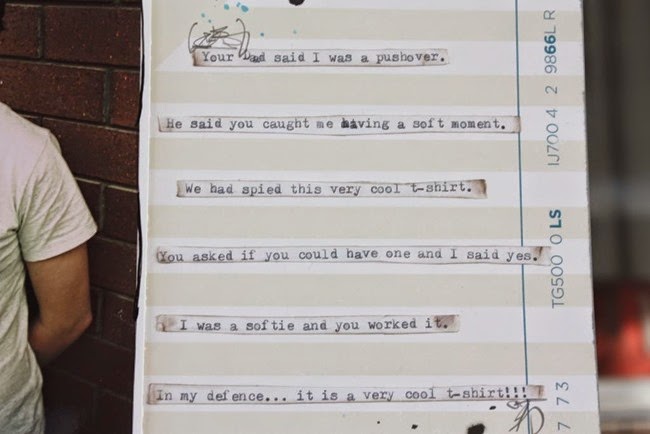 Your Dad said I was a pushover.
He said you caught me having a soft moment.
We had spied this very cool t-shirt.
You asked if you could have one and I said yes.
I was a softie and you worked it.
In my defence... it is a very cool t-shirt!!!
7 73 TG500 0 LS IJ700 4 2 9866L R